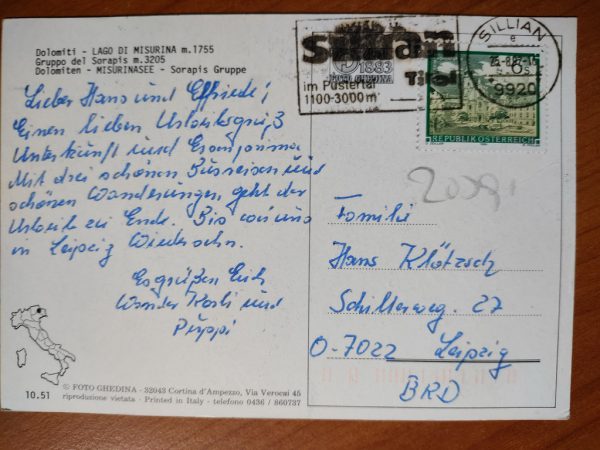 Dolomiti - LAGO DI MISURINA m.1755
Gruppo del Sorapis m.3205
Dolomiten - MISURINASEE - Sorapis Gruppe
Lieber Hans und Elfriede!
Einen lieben Urlaubsgruß
Unterkunft und Essen prima
Mit drei schönen Busreisen und
schönen Wanderungen geht der
Urlaub zu Ende. Bis wir uns
in Leipzig Wiedersehn.
Es grüßen Euch
Wander Karli und
Puppi
Sillian
Tirol
im Pustertal
1100-3000m
SILLIAN
e
9920
6S
REPUBLIK ÖSTERREICH
Familie
Hans Klötzsch
Schillerweg. 27
O-7022 Leipzig
BRD
© FOTO GHEDINA - 32043 Cortina d'Ampezzo, Via Verocai 45
10.51
riproduzione vietata - Printed in Italy - telefono 0436 / 860737